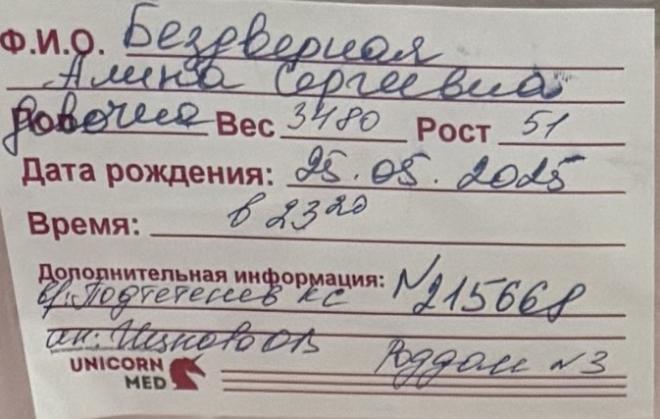 Ф.И.О. Бездверная
Алина Сергеевна
девочка Вес 3480 Рост 51
Дата рождения: 25.05.2025
Время: в 23 20
Дополнительная информация: N215668
вр: КС
ак: ОВ Роддом N3
UNICORN
MED